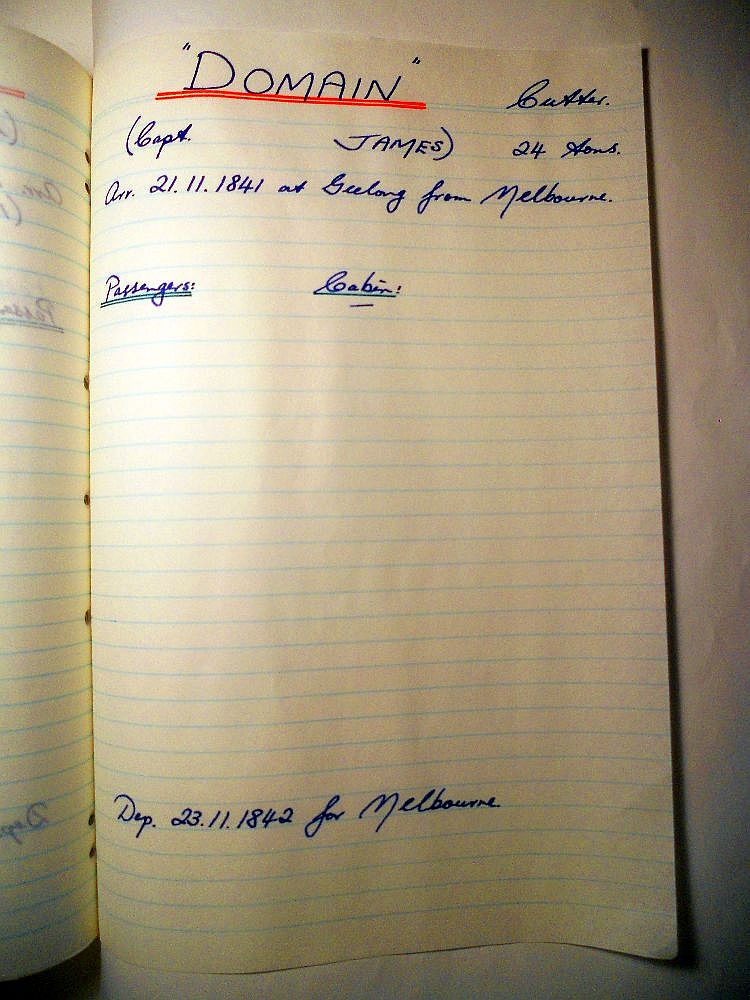 "DOMAIN" Cutter.
(Capt. JAMES) 24 tons.
Arr. 21.11.1841 at Geelong from Melbourne.
Passengers: Cabin:
—
Dep. 23.11.1842 for Melbourne